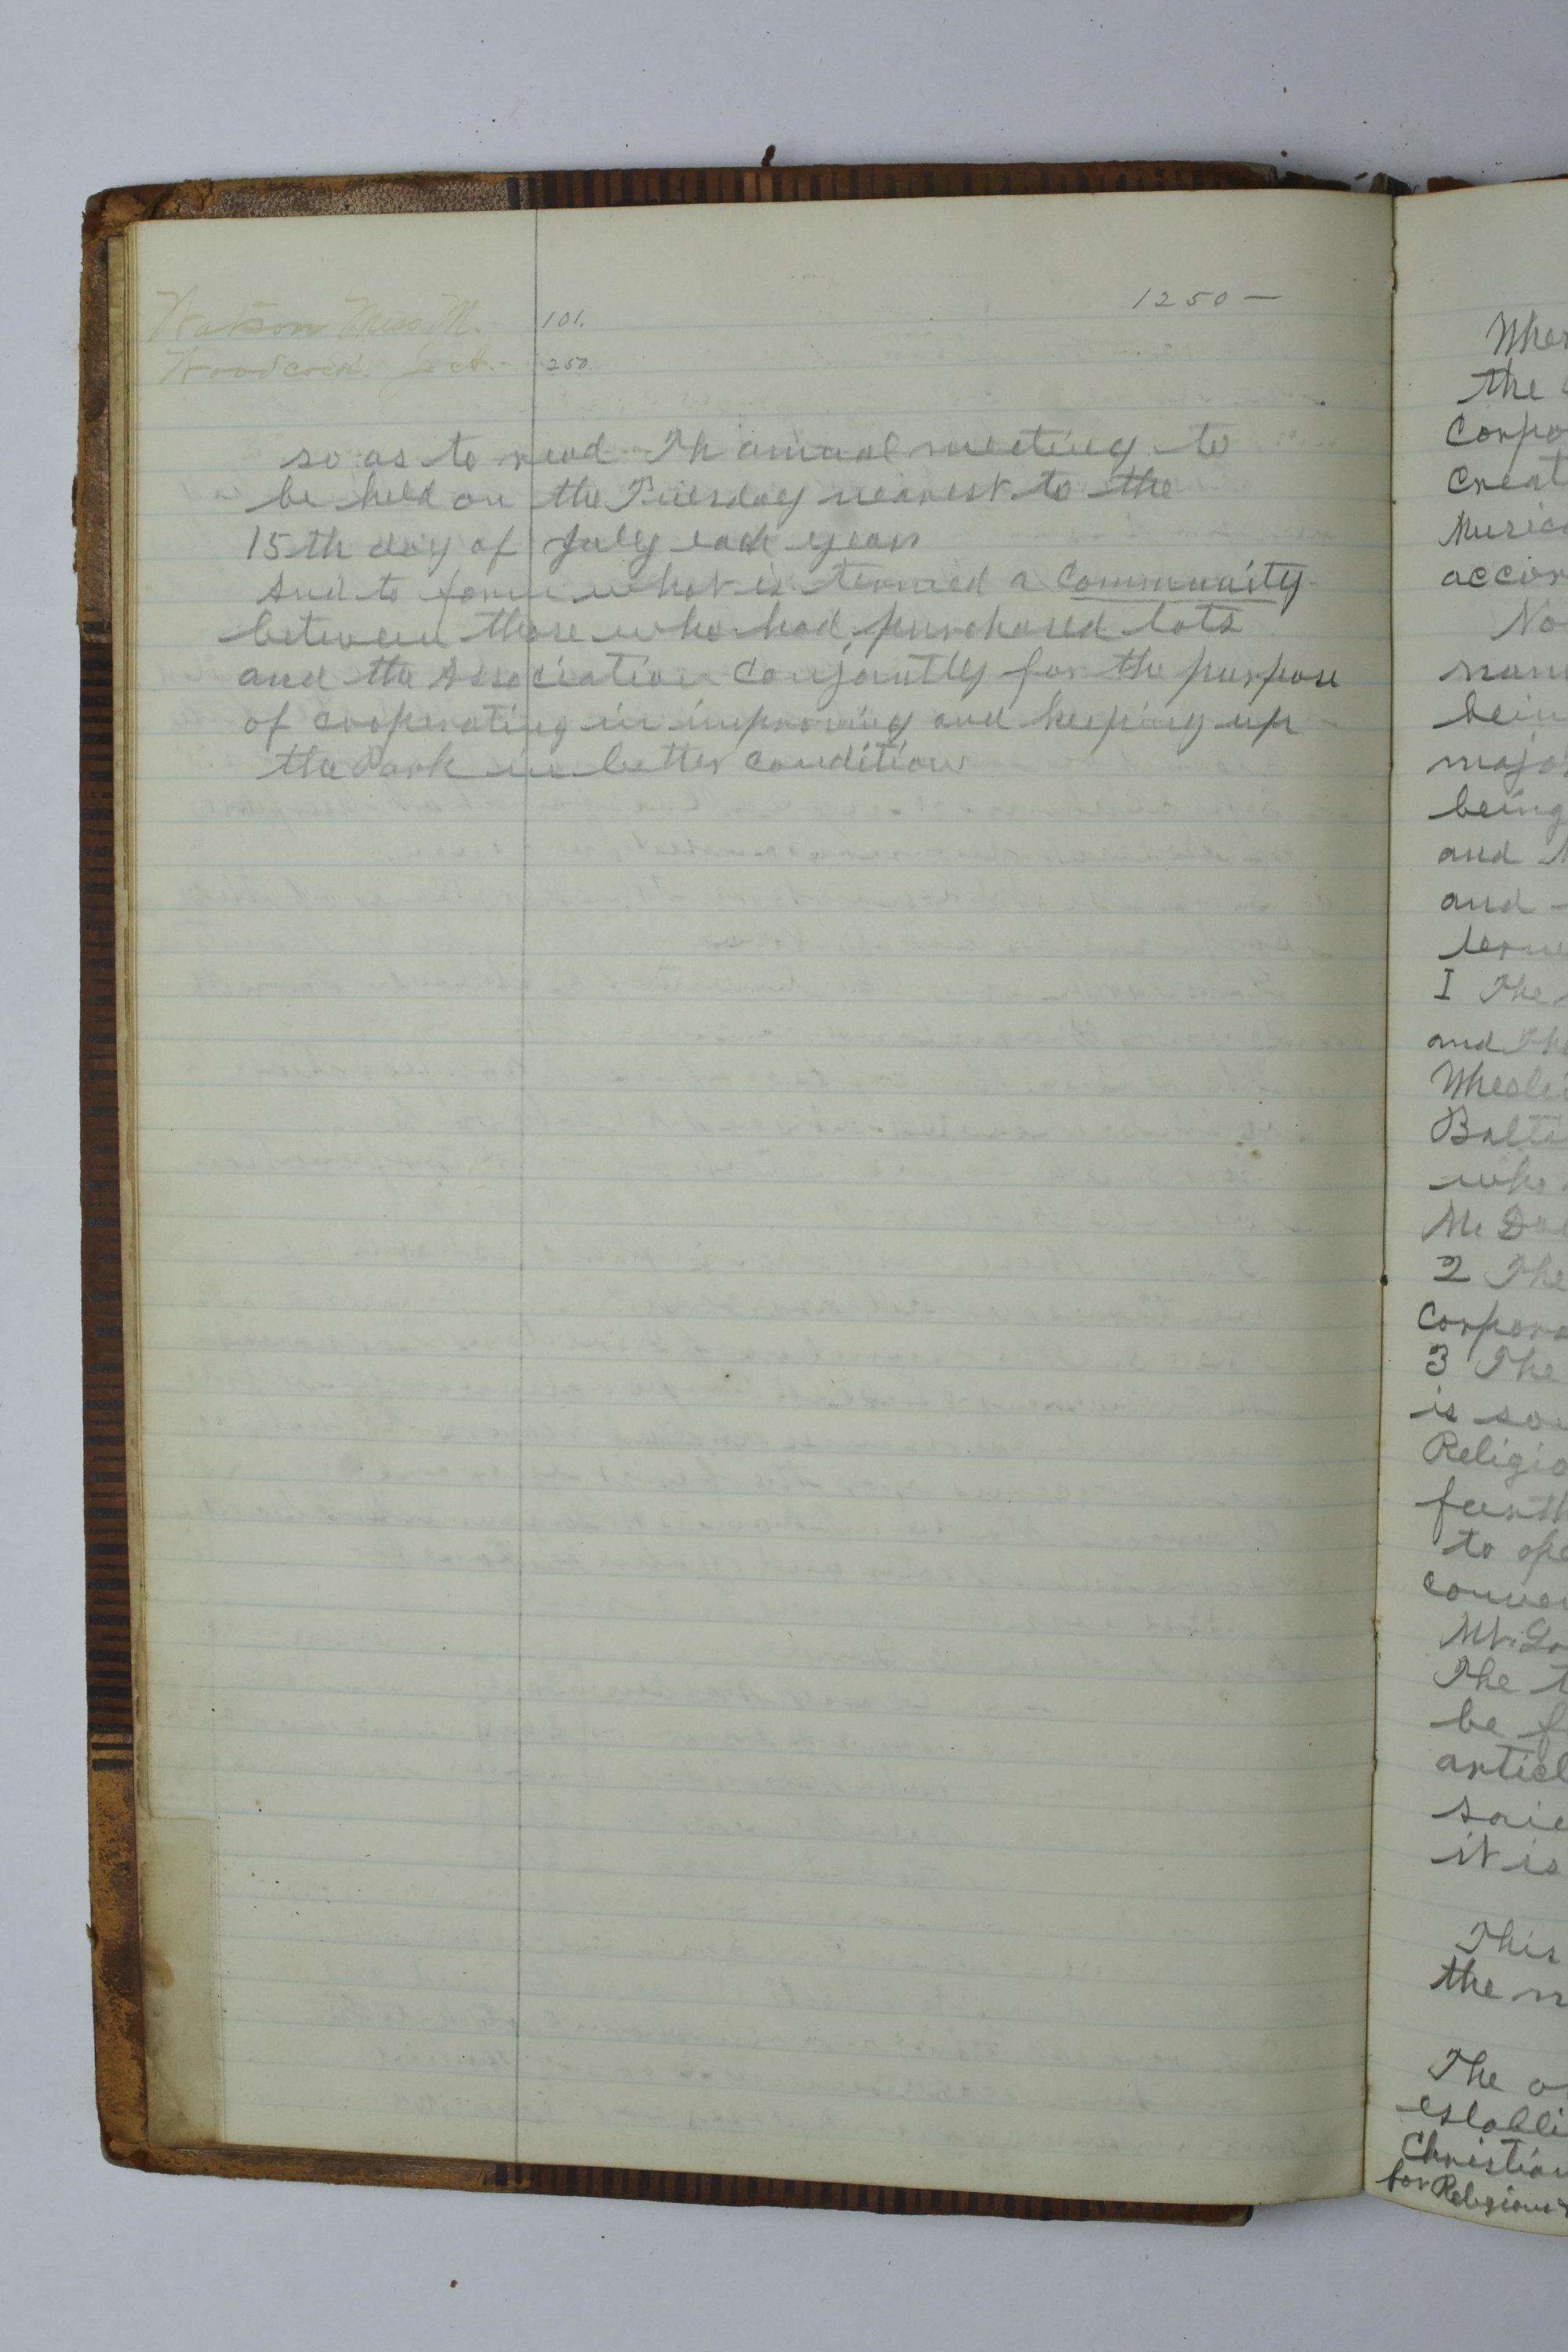 1250 —
Watson Miss M. 101.
Woodcock. 250
so as to read Th annual meeting to
be held on the Tuesday nearest to the
15th day of July each year
And to form what is termed a Community
between those who had purchased lots
and the Association Conjointly for the purpose
of cooperating in improving and keeping up
the Park in better condition
Wher
the
Corpo
Creat
Music
accor
No
nam
bein
major
being
and
and
I The
and The
Wheeli
Balti
who
2 The
Corpora
3 The
is sou
Religio
furth
to ope
conven
The t
be f
articl
said
it is
This
the n
The o
establi
Christian
for Religious